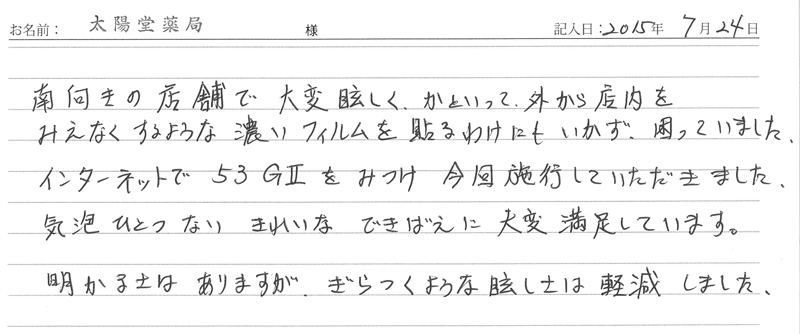 お名前： 太陽堂薬局 様 記入日：2015年 7月24日
南向きの店舗で 大変眩しく、かといって、外から店内を
みえなくするような 濃いフィルムを 貼るわけにも いかず、困っていました、
インターネットで 53 GⅡ を みつけ 今回 施行していただきました、
気泡 ひとつ ない きれいな できばえに 大変 満足しています。
明かるさは ありますが、ぎらつくような 眩しさは 軽減 しました、